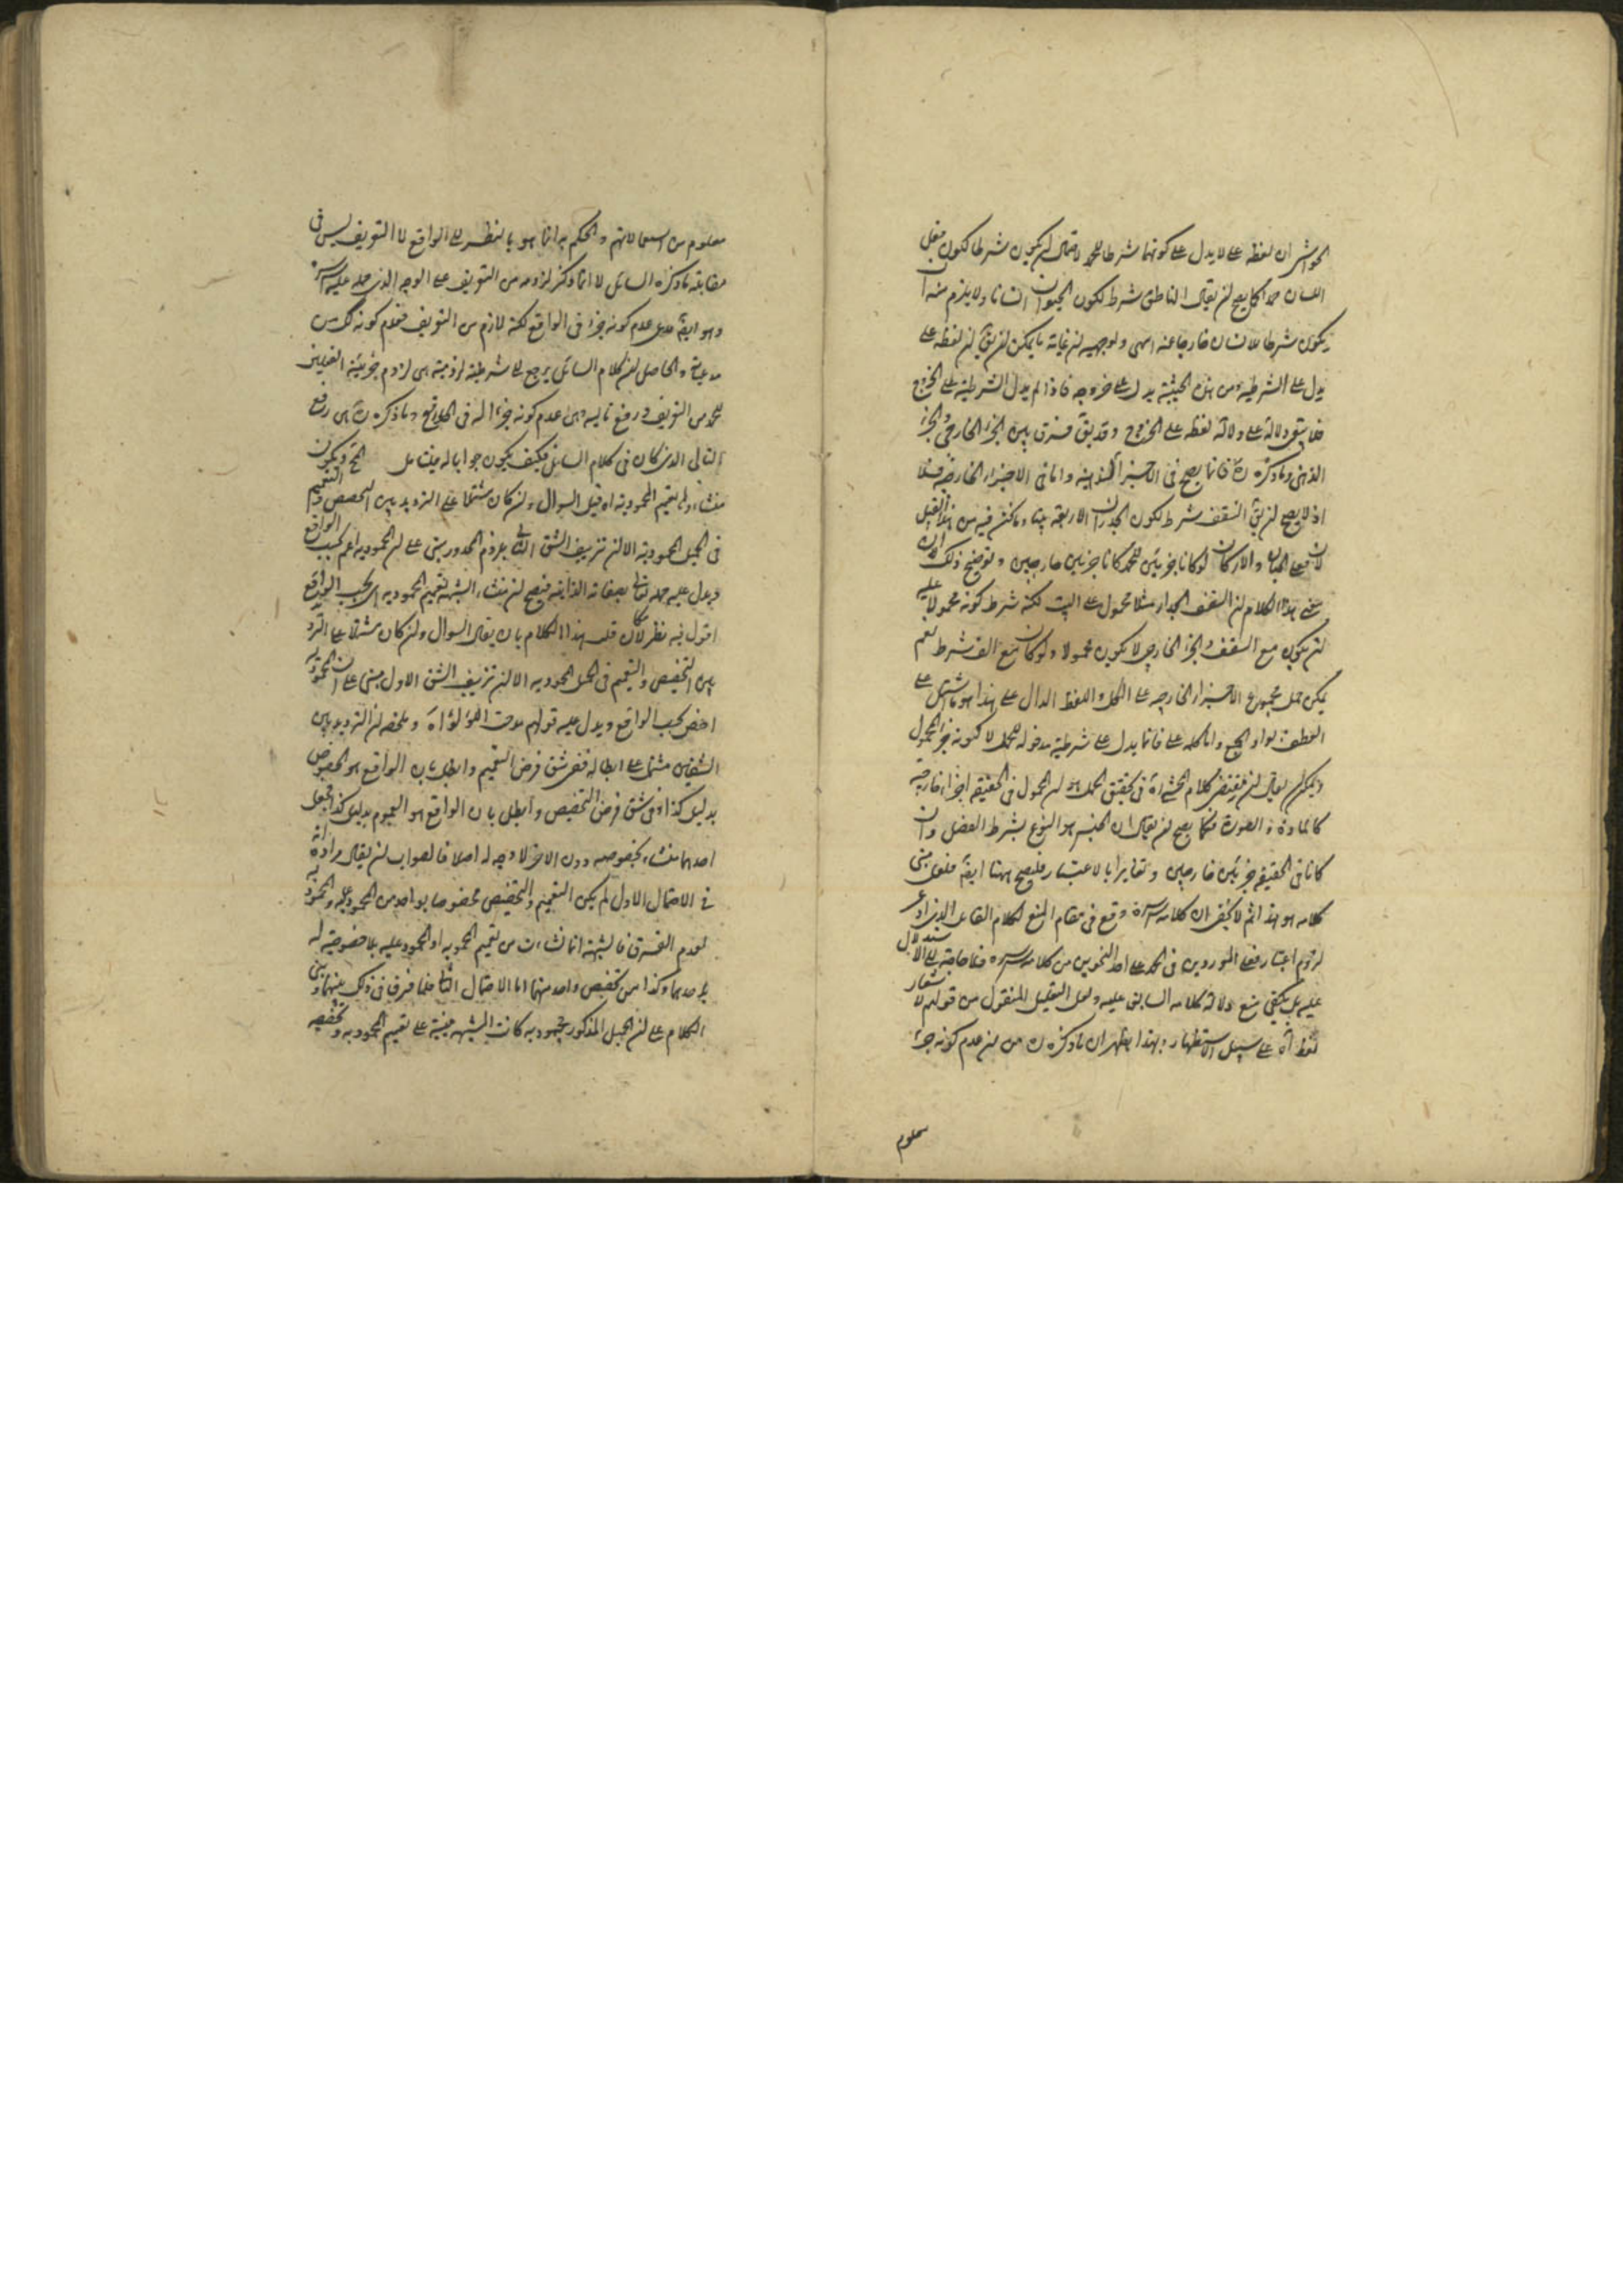 الحواشى ان لفظه على لا يدل على كونها شرطا للحمد لاحتمال ان يكون شرطا لكون فعل
اللسان حمدا كما يصح ان يقال الناطق شرط لكون الحيوان انسانا ولا يلزم منه ان
يكون شرطا للانسان خارجا عنه انتهى وتوجيهه ان غاية ما يمكن ان يقال ان لفظه على
يدل على الشرطية ومن هذه الحيثية يدل على خروجه فاذا لم يدل الشرطية على الخروج
فلا يبقى دلالة على دلالة لفظه على الخروج وقد يقال فرق بين الجزء الخارجى والجزء
الذهنى وما ذكره انما يصح فى الاجزاء الذهنية واما فى الاجزاء الخارجية فلا
اذ لا يصح ان يقال السقف شرط لكون الجدران الاربعة بيتا وما نحن فيه من هذا القبيل
لان فعل الجنان والاركان لو كانا جزئين للحمد كانا جزئين خارجين وتوضيح ذلك ان
معنى هذا الكلام ان السقف الجدار مثلا محمول على البيت لكنه شرط كونه محمولا عليه
ان يكون مع السقف والجزء الخارجى لا يكون محمولا ولو كان مع الف شرط نعم
يمكن حمل مجموع الاجزاء الخارجية على الكل واللفظ الدال على هذا هو ما يشتمل على
العطف بواو الجمع واما كلمة على فانما يدل على شرطية مدخوله للحمل لا لكونه جزء المحمول
ويمكن ان يقال ان مقتضى كلام المحشى ره فى تحقيق الحمل هو ان المحمول فى الحقيقة اجزاء خارجية
كالمادة والصورة فكما يصح ان يقال ان الجنس هو النوع بشرط الفصل وان
كانا فى الحقيقة جزئين خارجين وتغايرا بالاعتبار فليصح ههنا ايضا فلعل مبنى
كلامه هو هذا ثم لا يخفى ان كلامه قدس سره وقع فى مقام المنع لكلام القائل الذى ادعى
لزوم اعتبار فعلى الموردين فى الحمد على احد النحوين من كلامه قدس سره فلا حاجة الى الاستدلال
عليه بل يكفى منع دلالة كلامه السابق عليه ولعل التعليل المنقول من قوله لاشعار
لفظ اه على سبيل الاستظهار وبهذا يظهر ان ما ذكره من ان عدم كونه جزء
معلوم
معلوم من استعمالاتهم والحكم به انما هو بالنظر الى الواقع لا التعريف ليس فى
مقابلة ما ذكره السائل لا انما ذكر لزومه من التعريف على الوجه الذى حمله عليه قدس سره
وهو ايضا قائل بعدم كونه جزءا فى الواقع لكنه لازم من التعريف فعدم كونه كذلك من
مدعياته والحاصل ان كلام السائل يرجع الى شرطية لزومية هى لزوم جزئية الفعلين
للحمد من التعريف ورفع تاليه هى عدم كونه جزءا له فى الواقع وما ذكره هى رفع
التالى الذى كان فى كلام السائل فكيف يكون جوابا له فيتامل ويكون
منشاءه تعميم المحمود به اه قيل السوال وان كان مشتملا على الترديد بين التخصيص والتعميم
فى الجميل المحمود به الا ان تزييف الشق الثانى بلزوم المحذور مبنى على ان المحمود به اعم بحسب الواقع
ويدل عليه حمله تعالى بصفاته الذاتية فيصح ان منشاء الشبهة تعميم المحمود به اى بحسب الواقع
اقول فيه نظر لامكان قلب هذا الكلام بان يقال السوال وان كان مشتملا على الترديد
بين التخصيص والتعميم فى الجميل المحمود به الا ان تزييف الشق الاول مبنى على ان المحمود به
اخص بحسب الواقع ويدل عليه قولهم مدحت اللؤلؤ اه وملخصه ان الترديد بين
الشقين مشتمل على ابطاله ففى شق فرض التعميم وابطل بان الواقع هو الخصوص
بدليل كذا وفى شق فرض التخصيص وابطل بان الواقع هو العموم بدليل كذا فجعل
احدهما منشاء بخصوصه دون الاخر لا وجه له اصلا فالصواب ان يقال مراده انه
فى الاحتمال الاول لم يكن التعميم والتخصيص مخصوصا بواحد من المحمود عليه والمحمود به
لعدم الفرق فالشبهة انما نشاءت من تعميم المحمود به او المحمود عليه بلا خصوصية له
باحدهما وكذا من تخصيص واحد منهما اما الاحتمال الثانى فلما فرق فى ذلك بينهما وبنى
الكلام على ان الجميل المذكور محمود به كانت الشبهة مبنية على تعميم المحمود به وتخصيصه